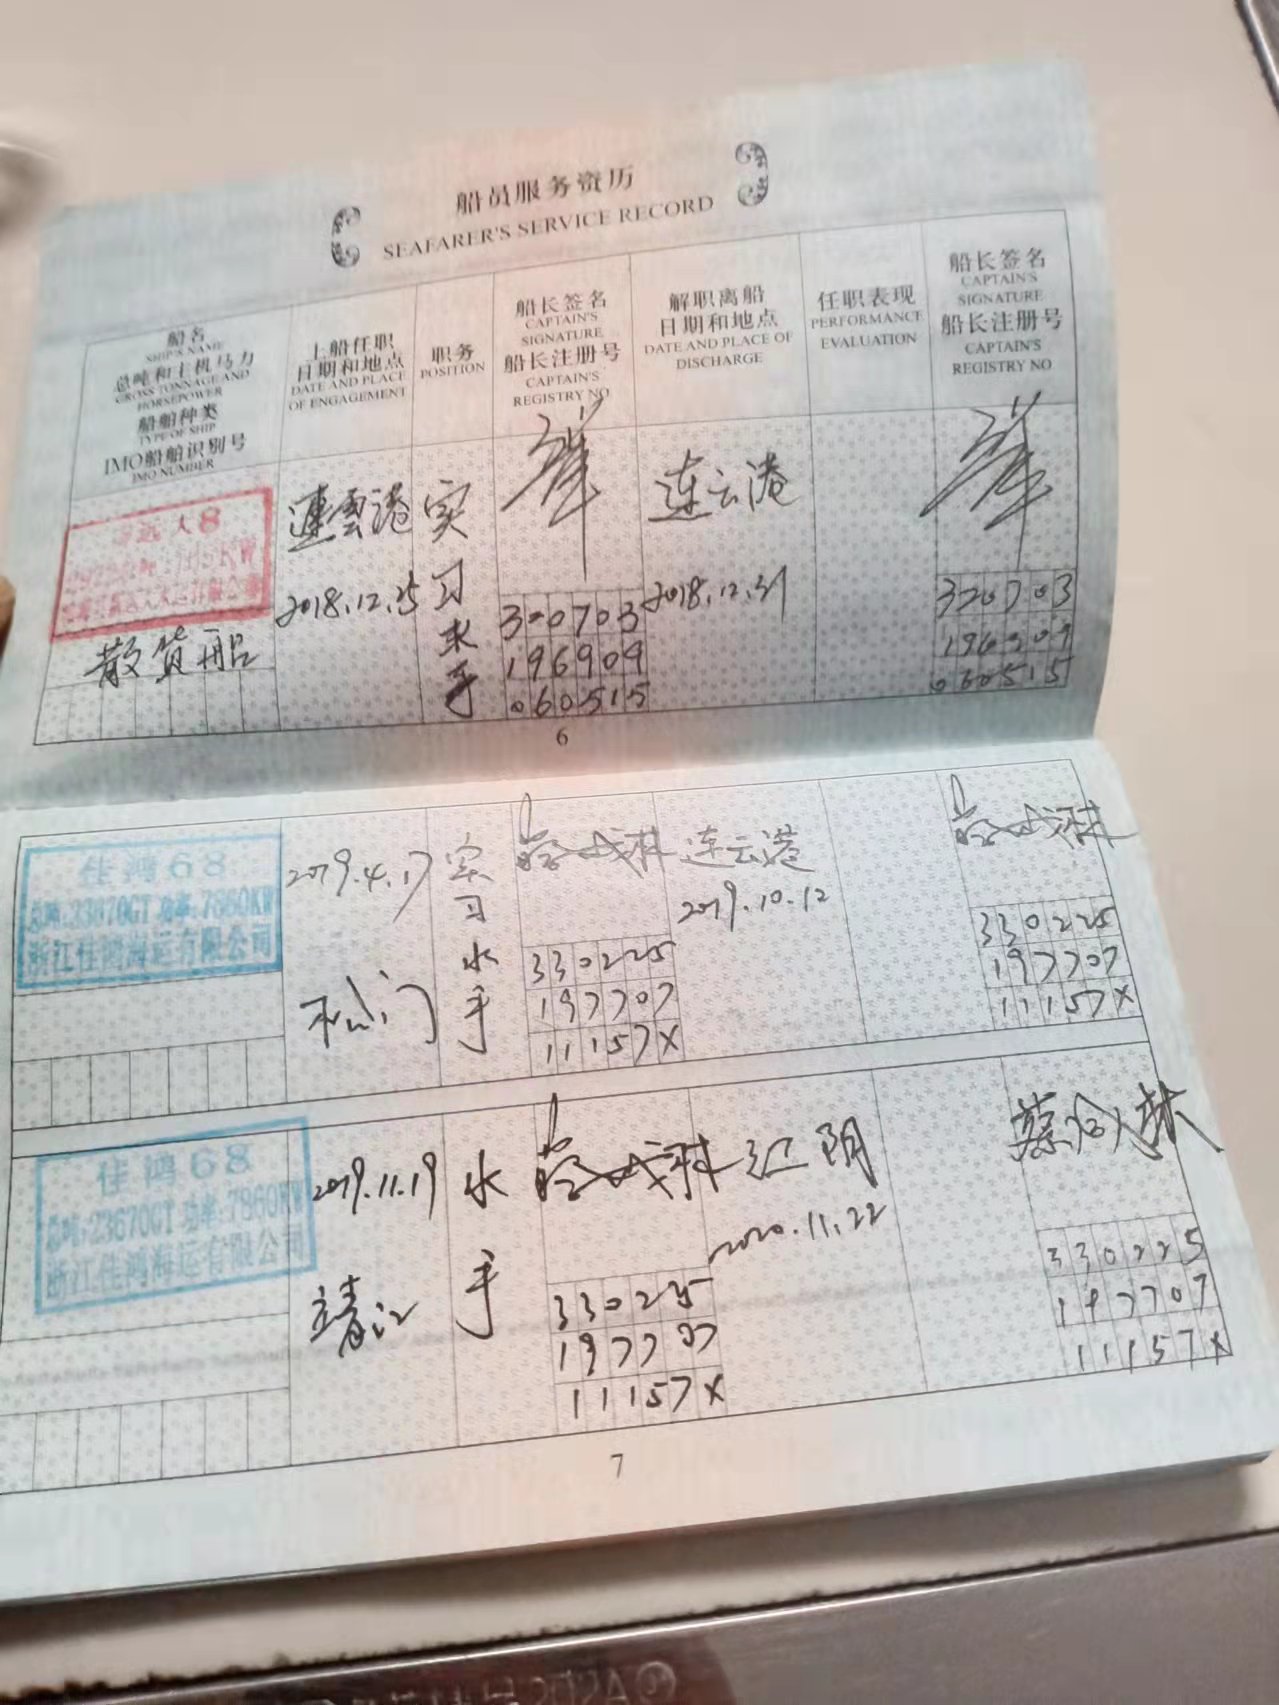 船员服务资历
SEAFARER'S SERVICE RECORD
船名
SHIP'S NAME
总吨和主机马力
GROSS TONNAGE AND
HORSEPOWER
船舶种类
TYPE OF SHIP
IMO船舶识别号
IMO NUMBER
上船任职
日期和地点
DATE AND PLACE
OF ENGAGEMENT
职务
POSITION
船长签名
CAPTAIN'S
SIGNATURE
船长注册号
CAPTAIN'S
REGISTRY NO
解职离船
日期和地点
DATE AND PLACE OF
DISCHARGE
任职表现
PERFORMANCE
EVALUATION
船长签名
CAPTAIN'S
SIGNATURE
船长注册号
CAPTAIN'S
REGISTRY NO
远大8
散货船
連雲港
2018.12.25
实
习
水
手
320703
196909
060515
连云港
2018.12.31
320703
196909
060515
6
佳鸿68
总吨:23670GT 功率:7860KW
浙江佳鸿海运有限公司
2019.4.17
松门
实
习
水
手
330225
197707
11157X
连云港
2019.10.12
330225
197707
11157X
佳鸿68
总吨:23670GT 功率:7860KW
浙江佳鸿海运有限公司
2019.11.19
靖江
水
手
33025
197707
11157X
江阴
2020.11.22
330225
197707
11157X
7